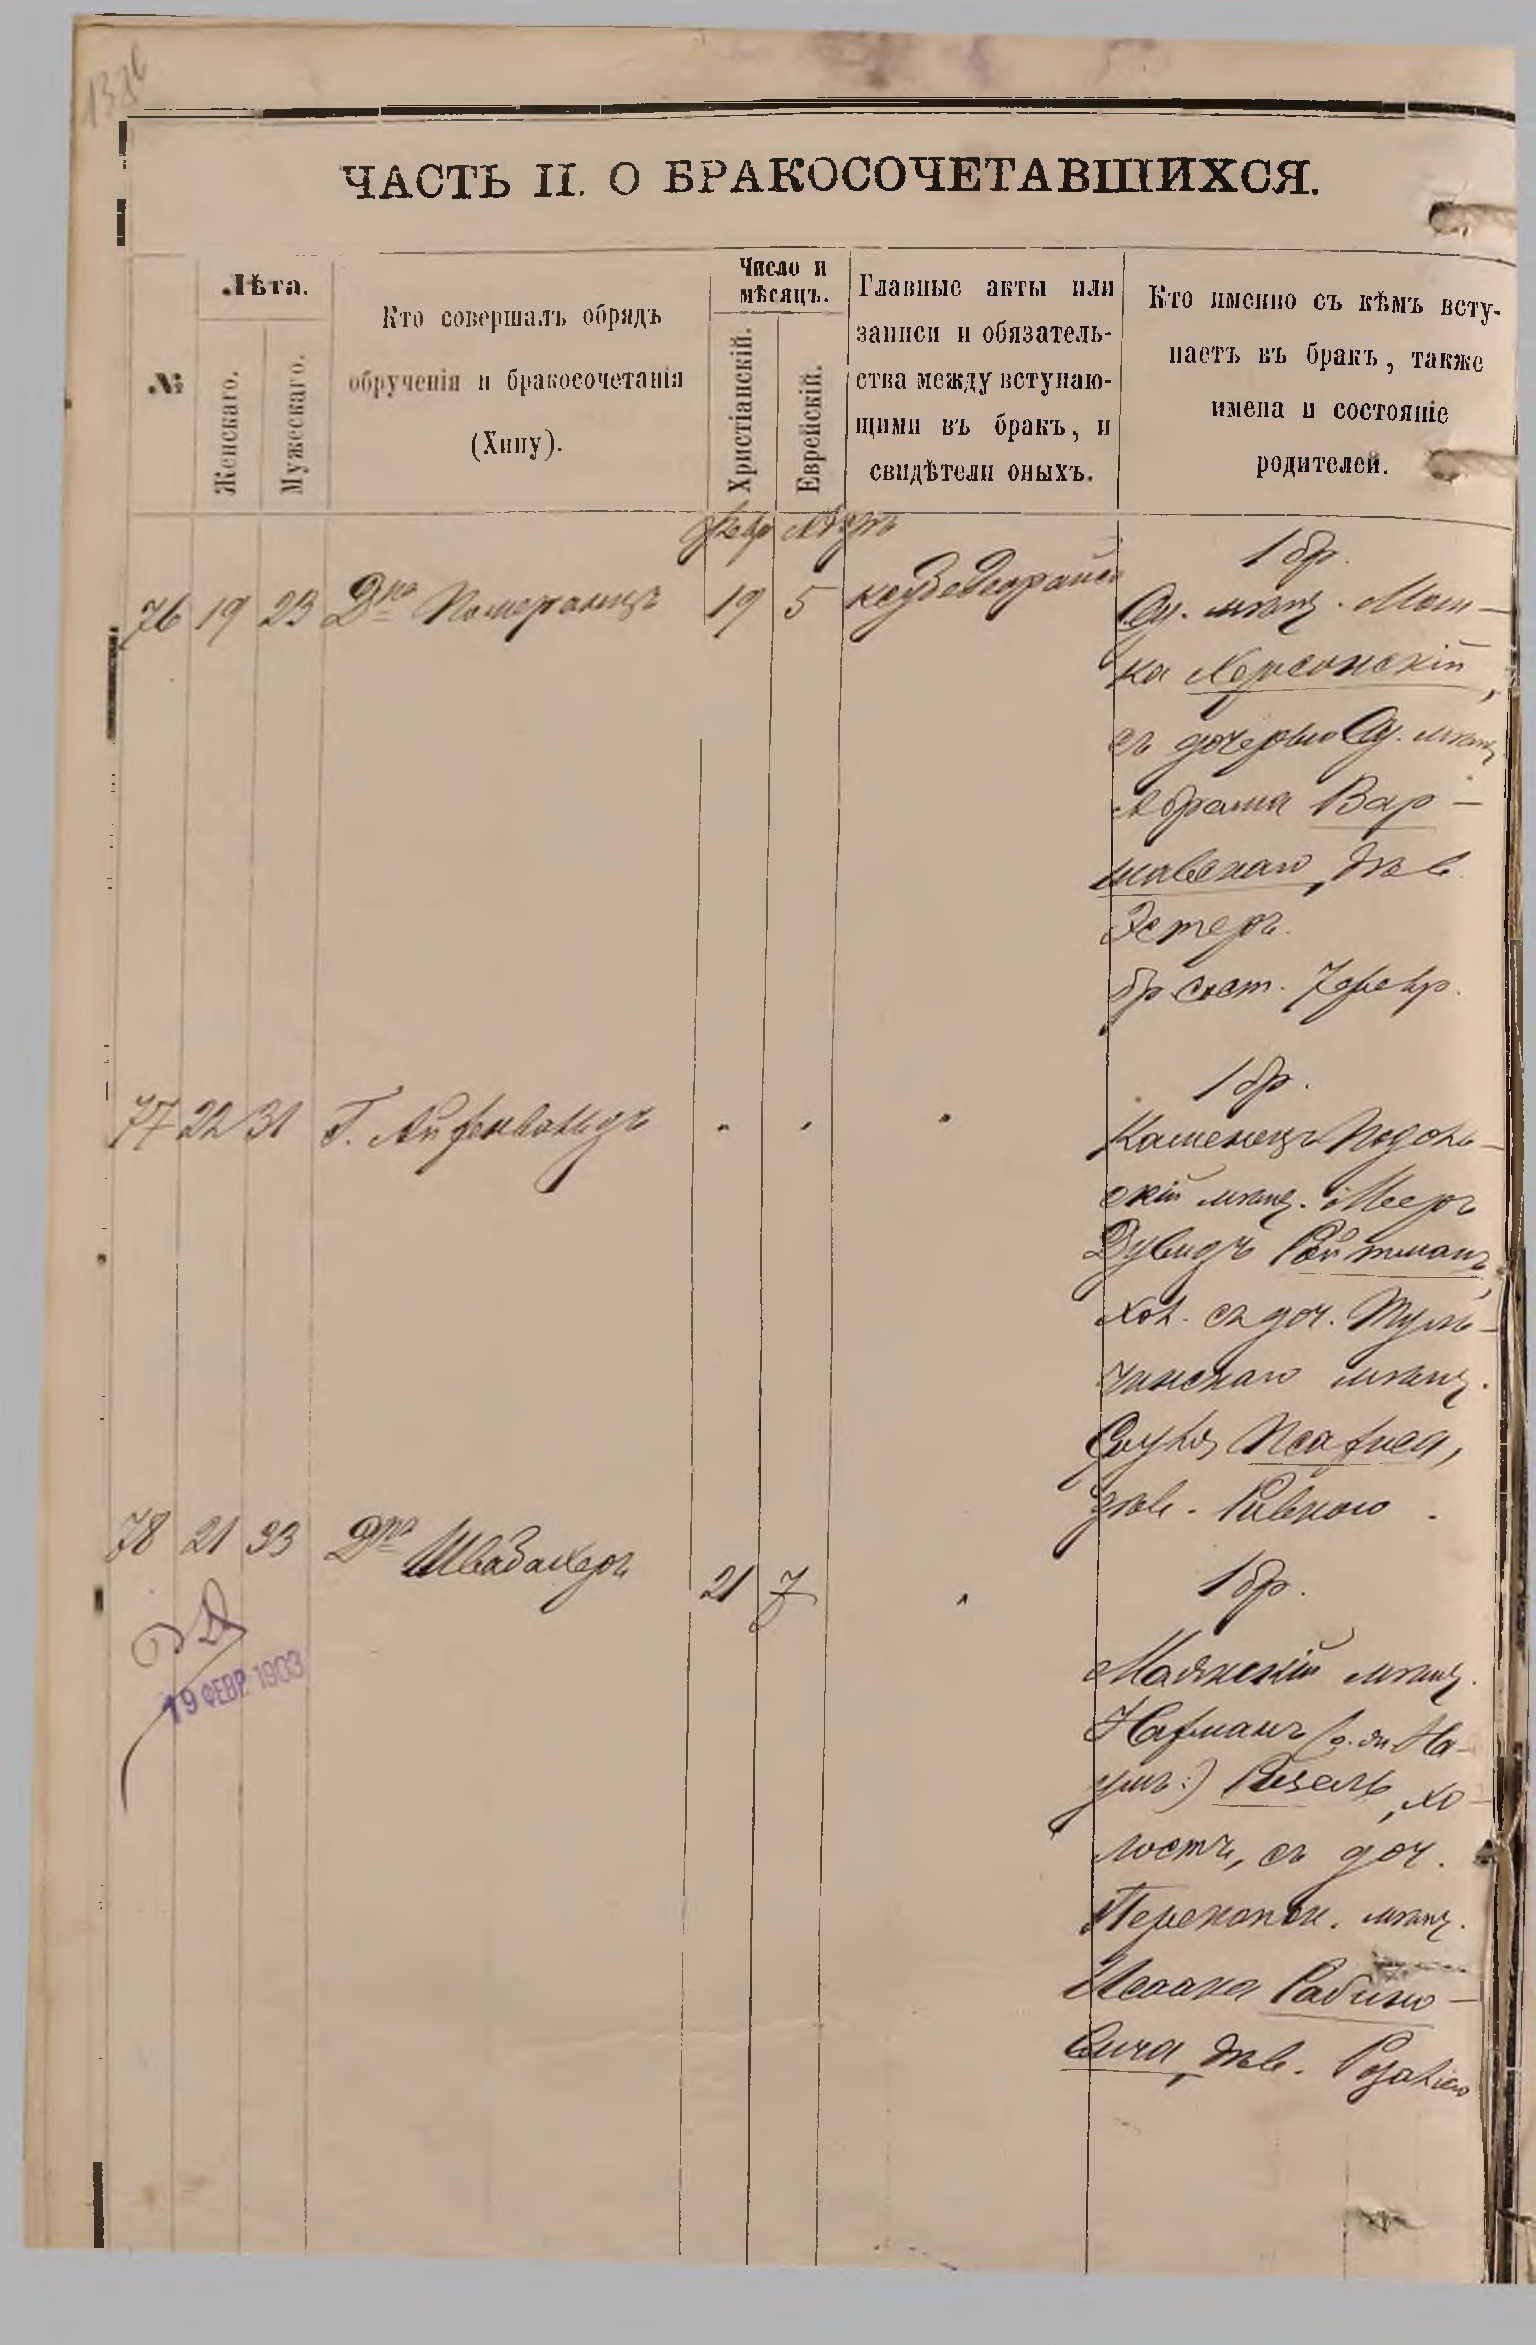 ЧАСТЬ II. О БРАКОСОЧЕТАВШИХСЯ.
№
Лѣта.
Женскаго.
Мужескаго.
Кто совершалъ обрядъ
обрученія и бракосочетанія
(Хипу).
Число и
мѣсяцъ.
Христіанскій.
Еврейскій.
Главные акты или
записи и обязатель-
ства между вступаю-
щими въ бракъ, и
свидѣтели оныхъ.
Кто именно съ кѣмъ всту-
паетъ въ бракъ, также
имена и состояніе
родителей.
Февр Адаръ
76 19 23 Дръ Померанцъ 19 5
1 бр.
Од. мѣщ. Мош-
ка Херсонскій,
съ дочерью Од. мѣщ.
Абрама Вар-
шавскаго, дѣв.
Эстеръ.
бр. сост. 7 Февр.
77 22 31 Г. " " "
1 бр.
Каменецъ Подоль-
скій мѣщ. Мееръ
Дувидъ Ройтманъ,
хол. съ доч. Туль-
чинскаго мѣщ.
дѣв. Ривкою.
78 21 33 Дръ Швабахеръ 21 7 "
1 бр.
Маякскій мѣщ.
Нахманъ (о. же На-
умъ:) Кизель, хо-
лостъ, съ доч.
Перекопск. мѣщ.
Исаака Рабино-
вича, дѣв. Розаліею
19 ФЕВР. 1903